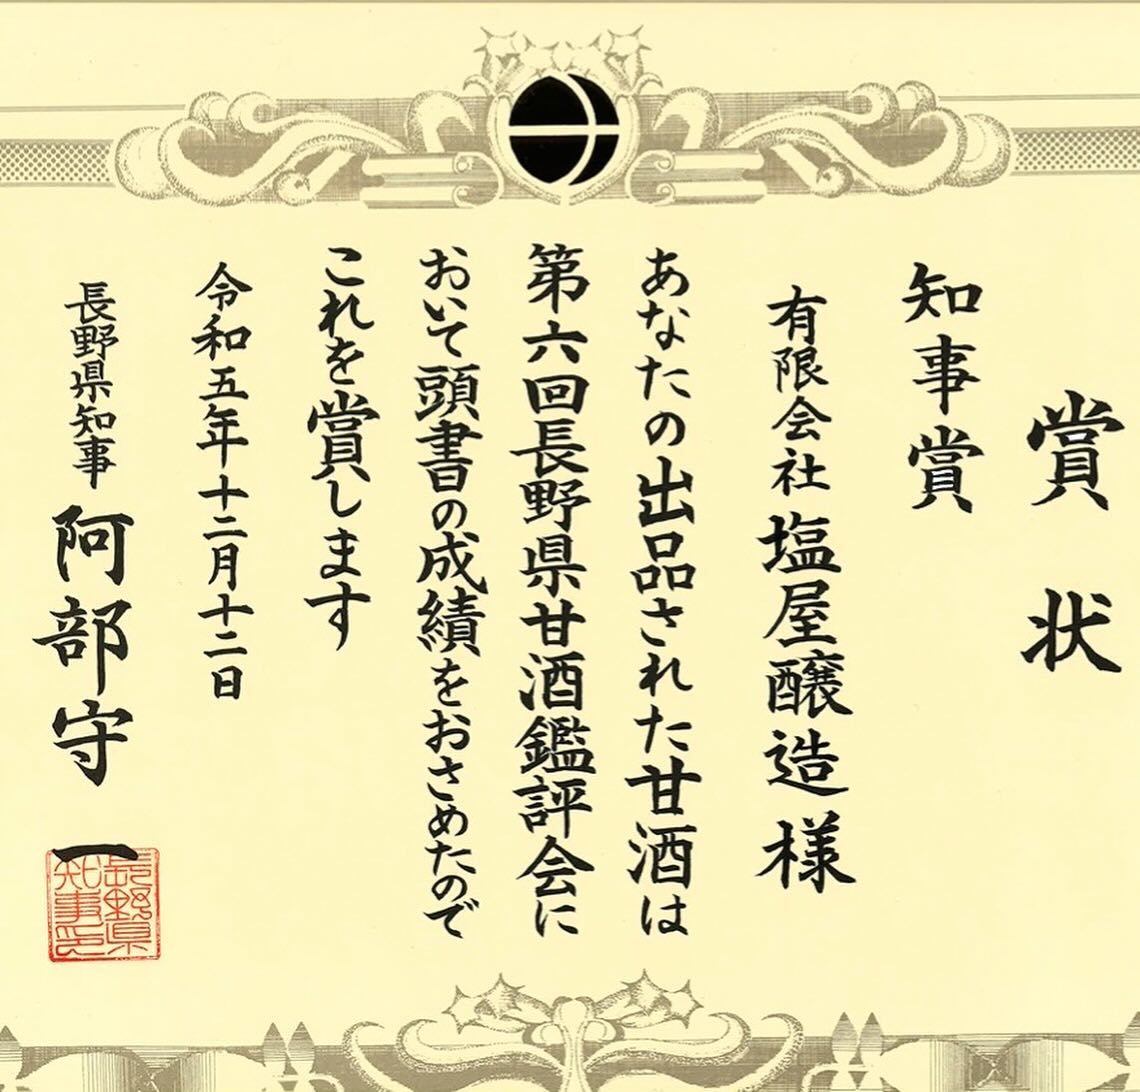 賞状
知事賞
有限会社 塩屋醸造様
あなたの出品された甘酒は
第六回長野県甘酒鑑評会に
おいて頭書の成績をおさめたので
これを賞します
令和五年十二月十二日
長野県知事 阿部守一
長野県
知事之印